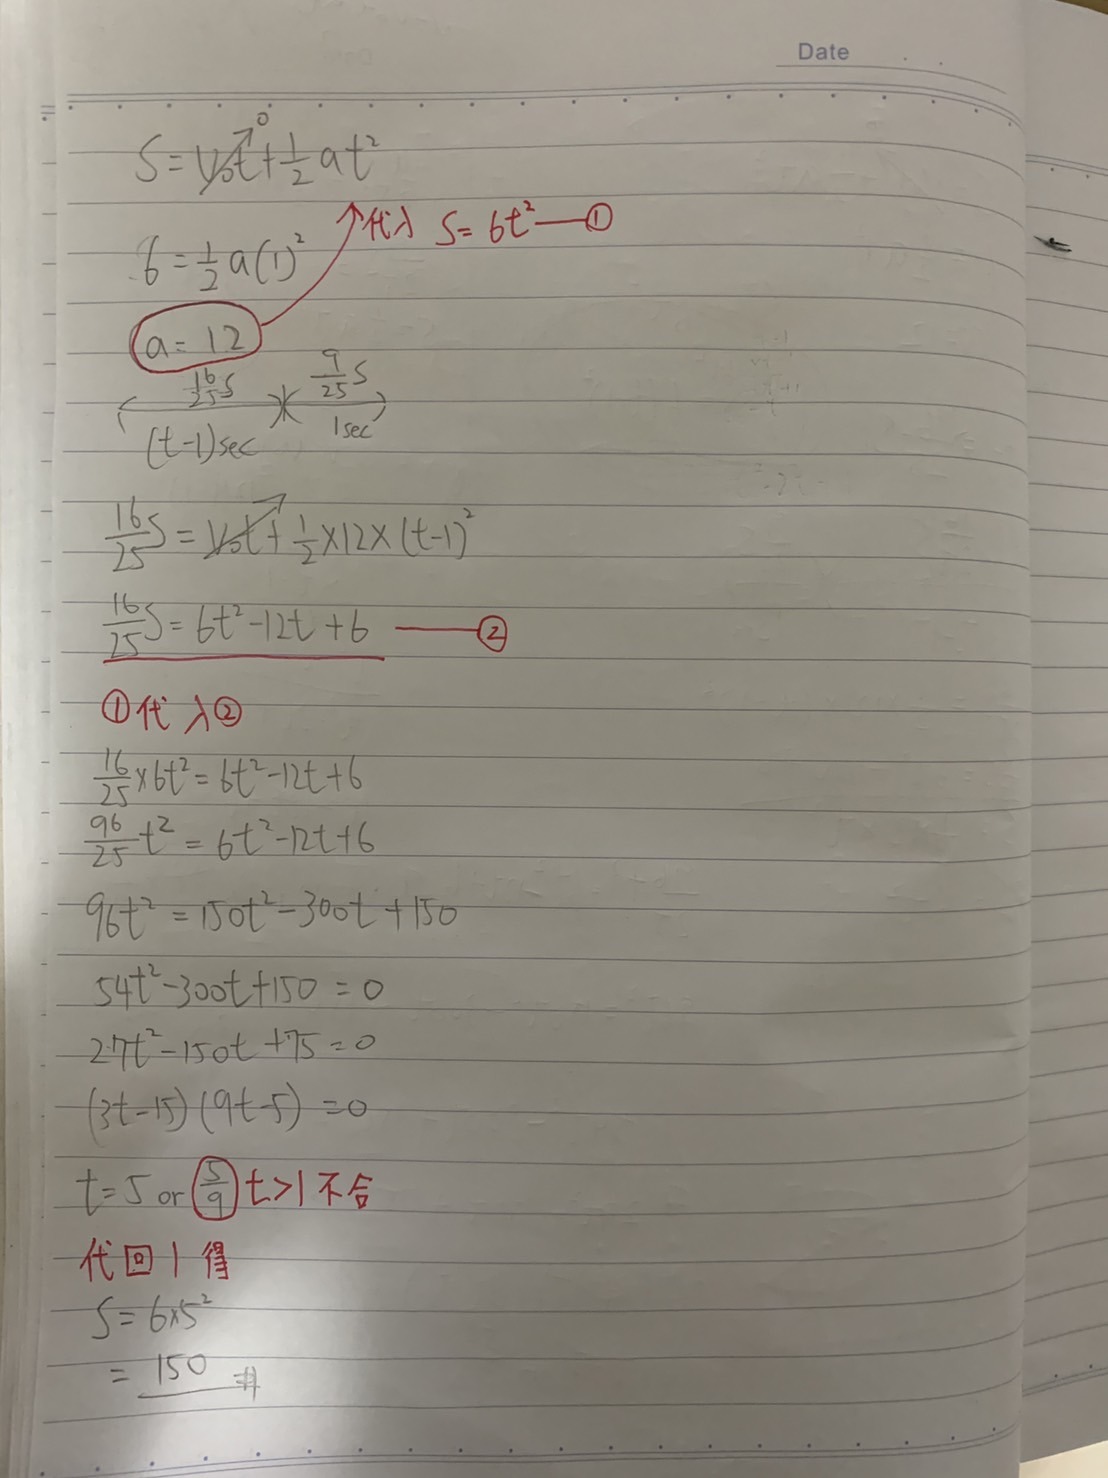 Date
S = V₀t⁰ + 1/2 at²
代入 S = 6t² — ①
6 = 1/2 a(1)²
a = 12
16/25 S 9/25 S
(t-1)sec 1sec
16/25 S = V₀t + 1/2 × 12 × (t-1)²
16/25 S = 6t² - 12t + 6 — ②
①代入②
16/25 × 6t² = 6t² - 12t + 6
96/25 t² = 6t² - 12t + 6
96t² = 150t² - 300t + 150
54t² - 300t + 150 = 0
27t² - 150t + 75 = 0
(3t - 15)(9t - 5) = 0
t = 5 or 5/9 t > 1 不合
代回1得
S = 6×5²
= 150 #